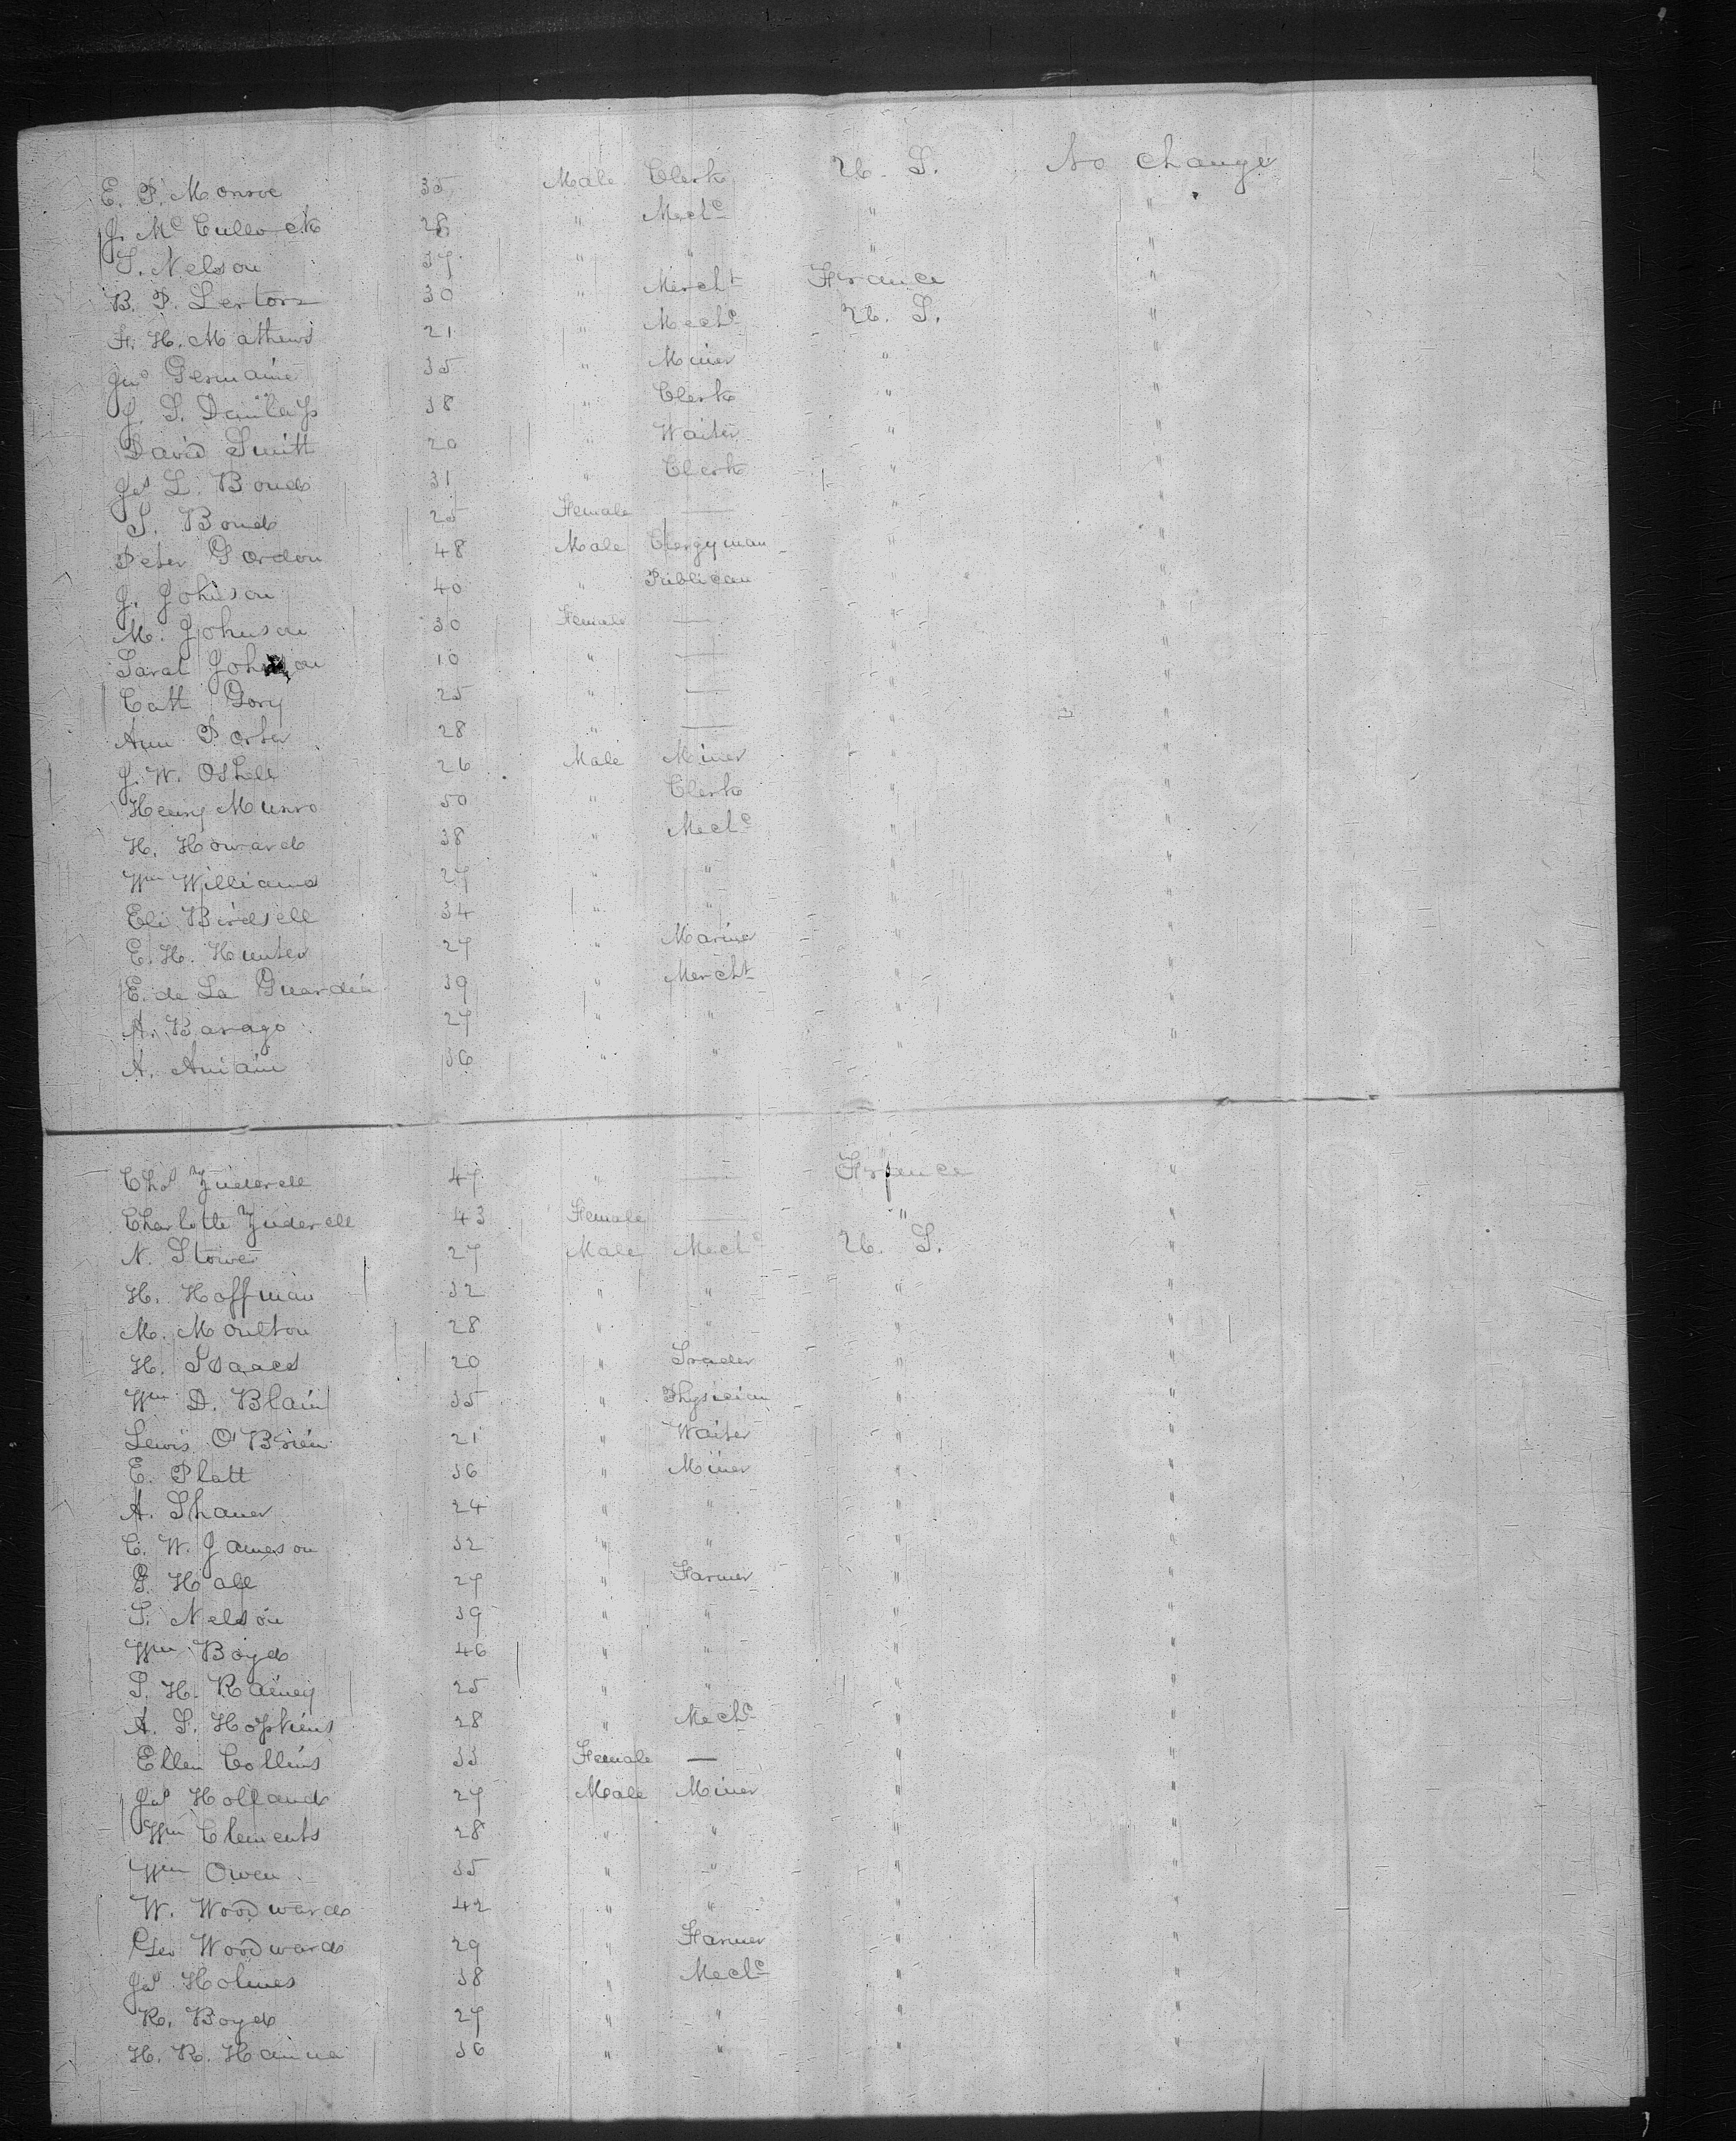 E. P. Monroe 35 Male Clerk U. S. No Change
J. McCullock 28 " Mechc " "
S. Nelson 37 " " " "
B. P. Lertora 30 " Mercht France "
F. H. Mathews 21 " Mechc U. S. "
Jno Germaine 35 " Miner " "
J. S. Danleys 38 " Clerk " "
David Smith 20 " Waiter " "
Jas L. Bond 31 " Clerk " "
S. Bond 25 Female — " "
Peter Gordon 48 Male Clergyman " "
J. Johnson 40 " Publican " "
M. Johnson 30 Female — " "
Sarah Johnson 10 " — " "
Cath Gory 25 " — " "
Ann Porter 28 " — " "
J. W. Oshell 26 Male Miner " "
Henry Munro 50 " Clerk " "
H. Howard 38 " Mechc " "
Wm Williams 27 " " " "
Eli Birdsell 34 " " " "
E. H. Hunter 27 " Mariner " "
E. de La Guardia 39 " Mercht " "
A. Barago 27 " " " "
A. Amiain 36 " " " "
Chas Zuderell 47 " — France "
Charlotte Zuderell 43 Female — " "
N. Stowe 27 Male Mechc U. S. "
H. Hoffman 32 " " " "
M. Moulton 28 " " " "
H. Isaacs 20 " Trader " "
Wm D. Blain 35 " Physician " "
Lewis O'Brien 21 " Waiter " "
E. Platt 36 " Miner " "
A. Shaner 24 " " " "
C. W. Jameson 32 " " " "
P. Hall 27 " Farmer " "
S. Nelson 39 " " " "
Wm Boyd 46 " " " "
S. H. Rainey 25 " " " "
A. S. Hopkins 28 " Mechc " "
Ellen Collins 33 Female — " "
Jas Holland 27 Male Miner " "
Wm Clements 28 " " " "
Wm Owen 35 " " " "
W. Woodward 42 " " " "
Geo Woodward 29 " Farmer " "
Jas Holmes 38 " Mechc " "
R. Boyd 27 " " " "
H. R. Hanna 36 " " " "